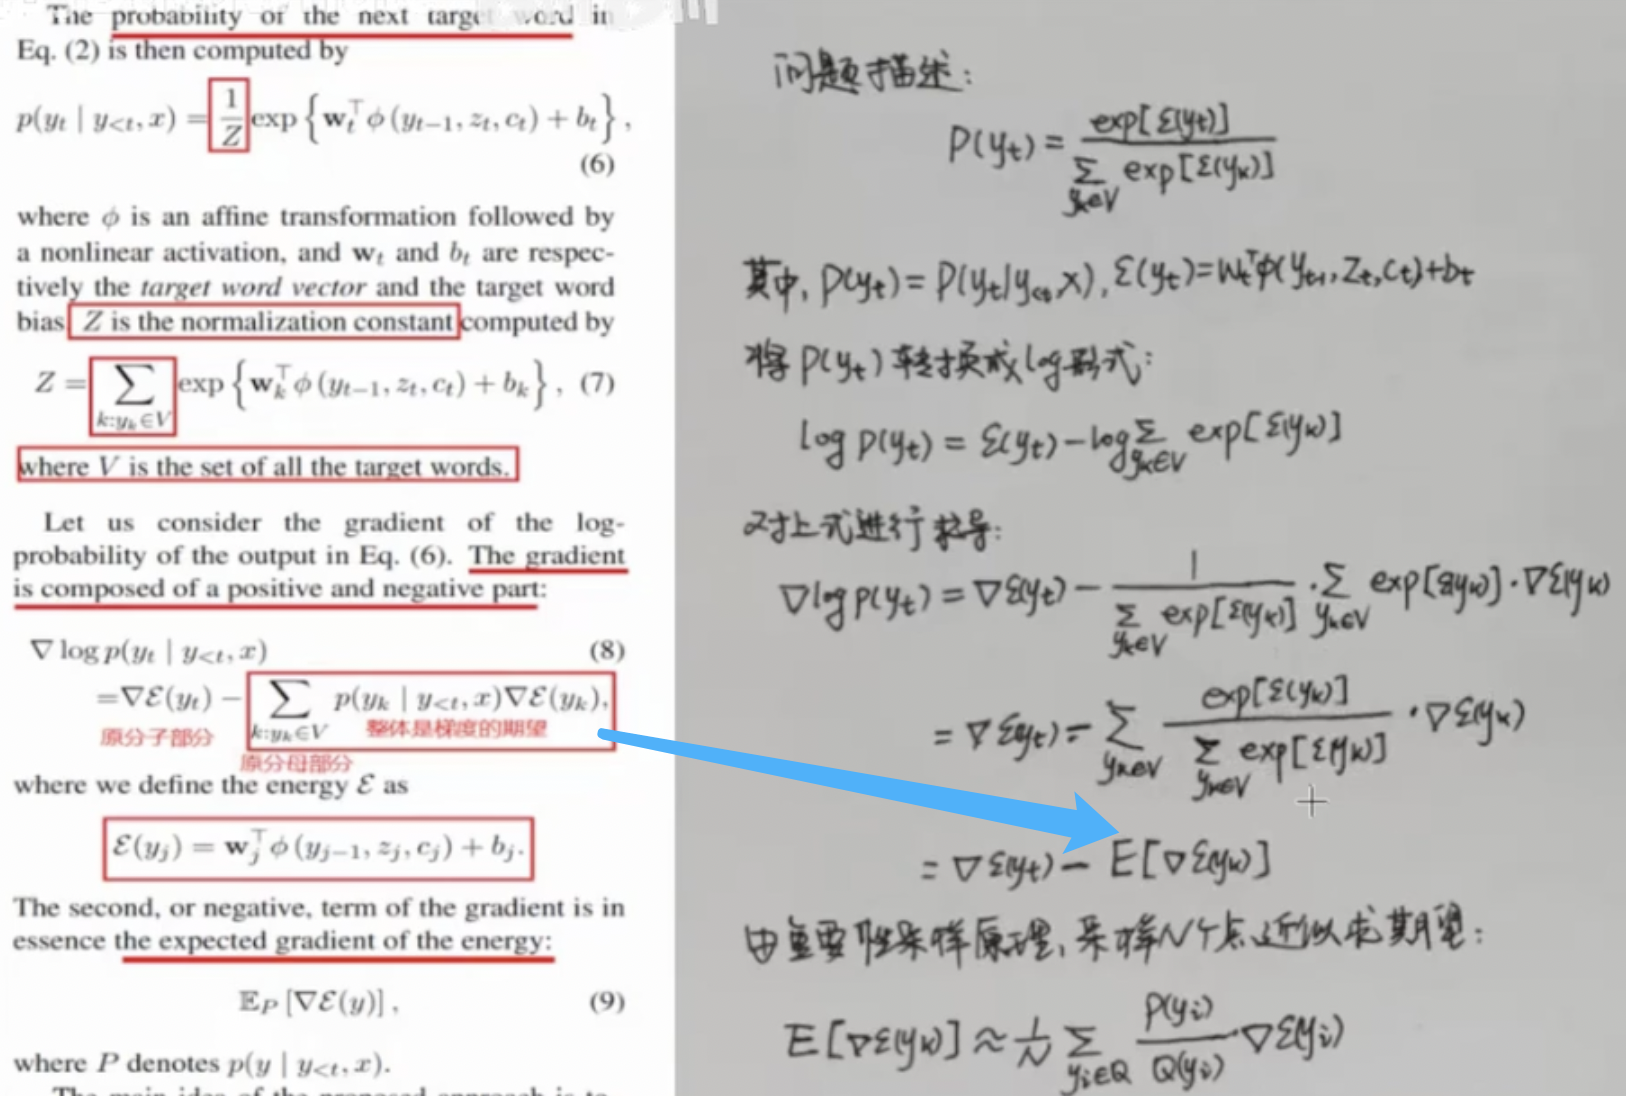 The probability of the next target word in
Eq. (2) is then computed by
p(y_t | y_{<t}, x) = \frac{1}{Z} exp { w_t^⊤ φ (y_{t−1}, z_t, c_t) + b_t } ,
(6)
where φ is an affine transformation followed by
a nonlinear activation, and w_t and b_t are respec-
tively the target word vector and the target word
bias. Z is the normalization constant computed by
Z = ∑_{k:y_k∈V} exp { w_k^⊤ φ (y_{t−1}, z_t, c_t) + b_k } , (7)
where V is the set of all the target words.
Let us consider the gradient of the log-
probability of the output in Eq. (6). The gradient
is composed of a positive and negative part:
∇ log p(y_t | y_{<t}, x) (8)
=∇ℰ(y_t) − ∑_{k:y_k∈V} p(y_k | y_{<t}, x)∇ℰ(y_k),
原分子部分 整体是梯度的期望
原分母部分
where we define the energy ℰ as
ℰ(y_j) = w_j^⊤ φ (y_{j−1}, z_j, c_j) + b_j.
The second, or negative, term of the gradient is in
essence the expected gradient of the energy:
𝔼_P [∇ℰ(y)] , (9)
where P denotes p(y | y_{<t}, x).
The main idea of the proposed approach is to
问题描述:
P(y_t) = \frac{exp[ℰ(y_t)]}{∑_{y_k∈V} exp[ℰ(y_k)]}
其中, P(y_t) = P(y_t|y_{<t}, x), ℰ(y_t)=w_t^⊤φ(y_{t-1}, z_t, c_t)+b_t
将P(y_t)转换成log形式:
log P(y_t) = ℰ(y_t) − log ∑_{y_k∈V} exp[ℰ(y_k)]
对上式进行求导:
∇log p(y_t) = ∇ℰ(y_t) − \frac{1}{∑_{y_k∈V} exp[ℰ(y_k)]} · ∑_{y_k∈V} exp[ℰ(y_k)] · ∇ℰ(y_k)
= ∇ℰ(y_t) − ∑_{y_k∈V} \frac{exp[ℰ(y_k)]}{∑_{y_k∈V} exp[ℰ(y_k)]} · ∇ℰ(y_k)
= ∇ℰ(y_t) − E[∇ℰ(y_k)]
由重要性采样原理, 采样N个点近似求期望:
E[∇ℰ(y_k)] ≈ \frac{1}{N} ∑_{y_i∈Q} \frac{P(y_i)}{Q(y_i)} ∇ℰ(y_i)